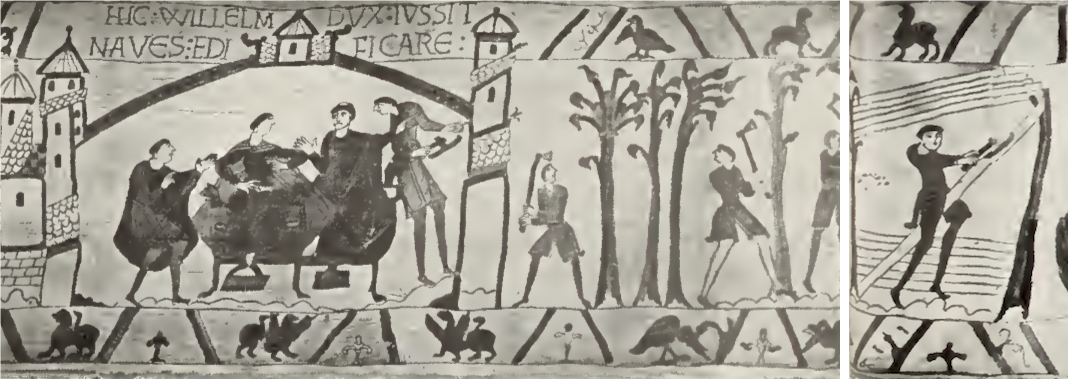 HIC:WILLELM DVX:IVSSIT
NAVES:EDIFICARE: